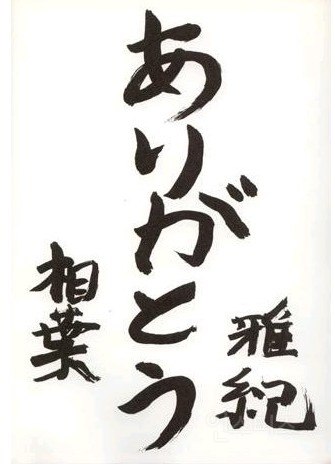 ありがとう
相葉
雅紀